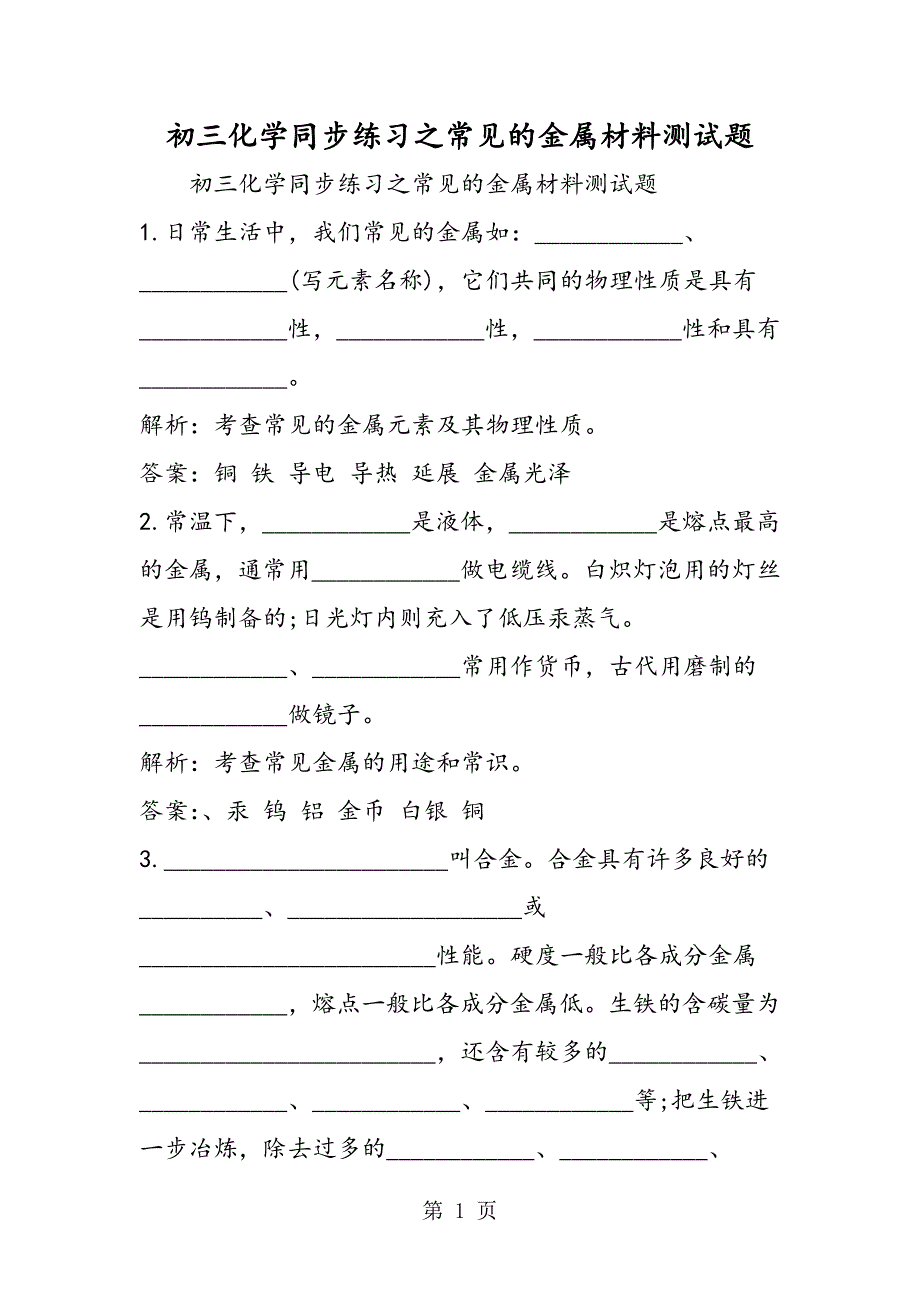 初三化学同步练习之常见的金属材料测试题
初三化学同步练习之常见的金属材料测试题
1.日常生活中，我们常见的金属如：____________、
____________(写元素名称)，它们共同的物理性质是具有
____________性，____________性，____________性和具有
____________。
解析：考查常见的金属元素及其物理性质。
答案：铜 铁 导电 导热 延展 金属光泽
2.常温下，____________是液体，____________是熔点最高
的金属，通常用____________做电缆线。白炽灯泡用的灯丝
是用钨制备的;日光灯内则充入了低压汞蒸气。
____________、____________常用作货币，古代用磨制的
____________做镜子。
解析：考查常见金属的用途和常识。
答案:、汞 钨 铝 金币 白银 铜
3._______________________叫合金。合金具有许多良好的
__________、___________________或
________________________性能。硬度一般比各成分金属
____________，熔点一般比各成分金属低。生铁的含碳量为
________________________，还含有较多的____________、
____________、____________、____________等;把生铁进
一步冶炼，除去过多的____________、____________、
第 1 页